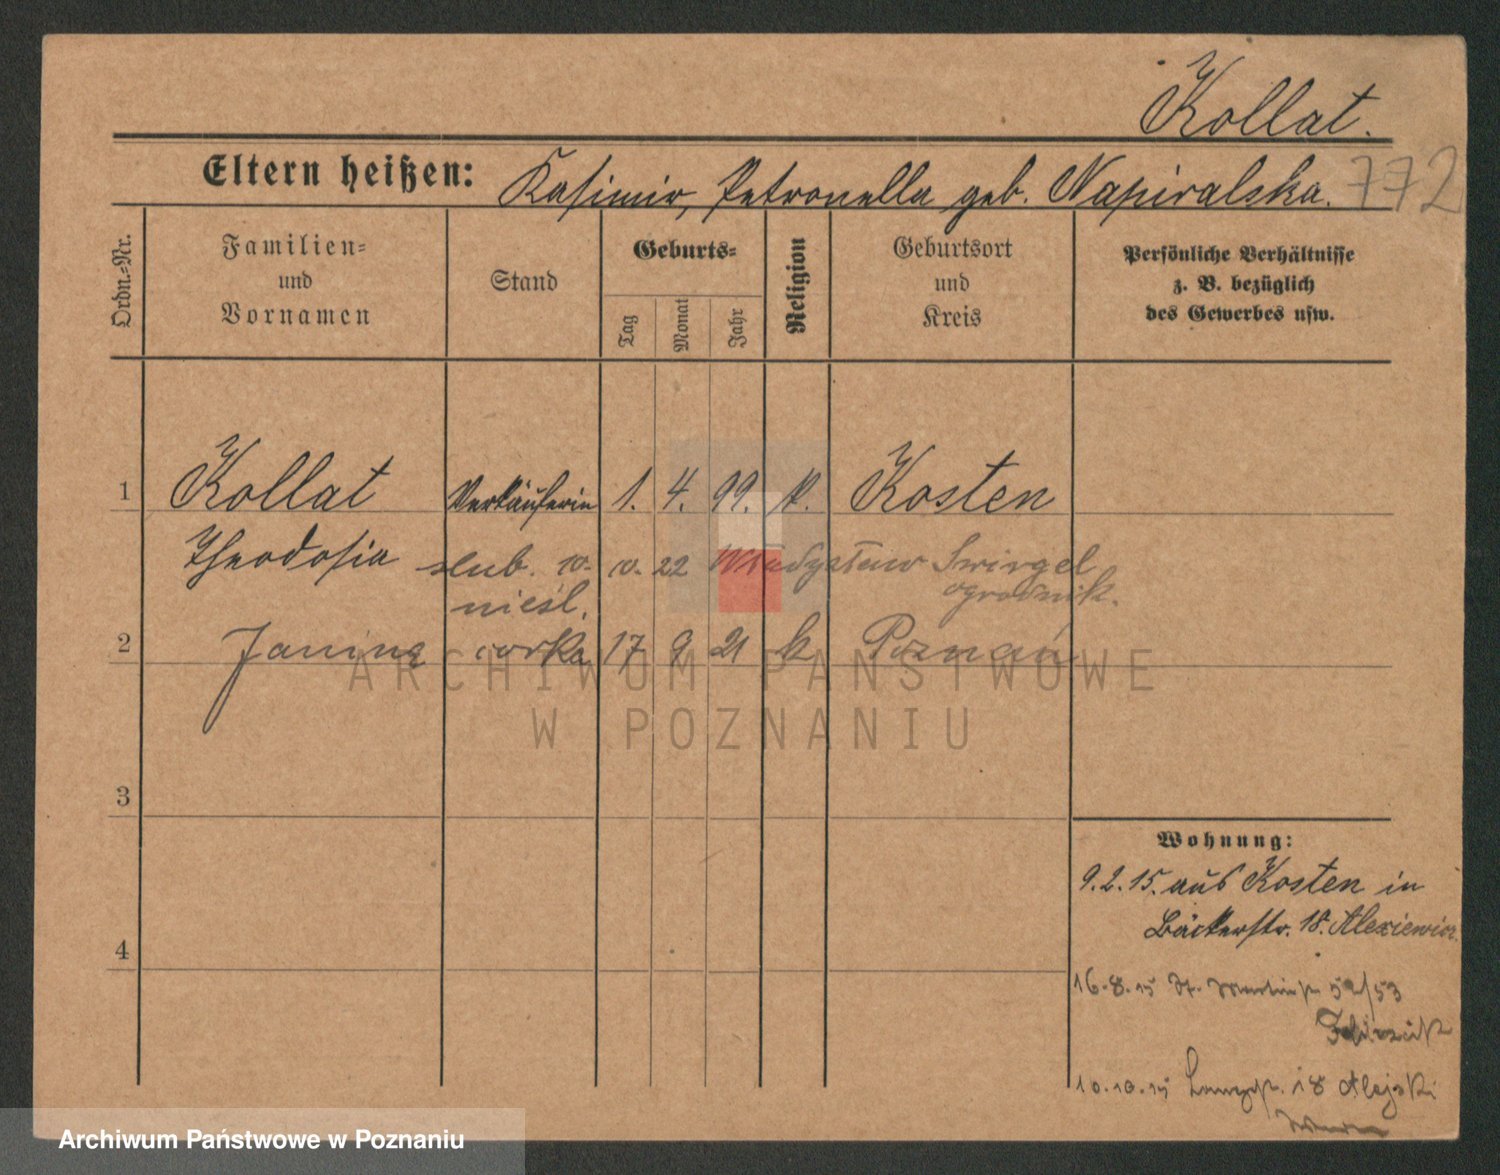 Kollat.
Eltern heißen: Kasimir, Petronella geb. Napiralska. 772
Ordn.=Nr.
Familien=
und
Vornamen
Stand
Geburts=
Tag
Monat
Jahr
Religion
Geburtsort
und
Kreis
Persönliche Verhältnisse
z. B. bezüglich
des Gewerbes usw.
1 Kollat Verkäuferin 1. 4. 99. k. Kosten
Theodosia ślub. 10. 10. 22 Władysław Swirgel
ogrodnik.
nieśl.
2 Janina corka 17 9 21 k Poznań
ARCHIWUM PAŃSTWOWE
W POZNANIU
3
4
Wohnung:
9.2.15. aus Kosten in
Bäckerstr. 18. Alexiewicz.
16.8.15 St. Martinstr 52/53
10.10.15 Langestr. 18 Alejski
Archiwum Państwowe w Poznaniu